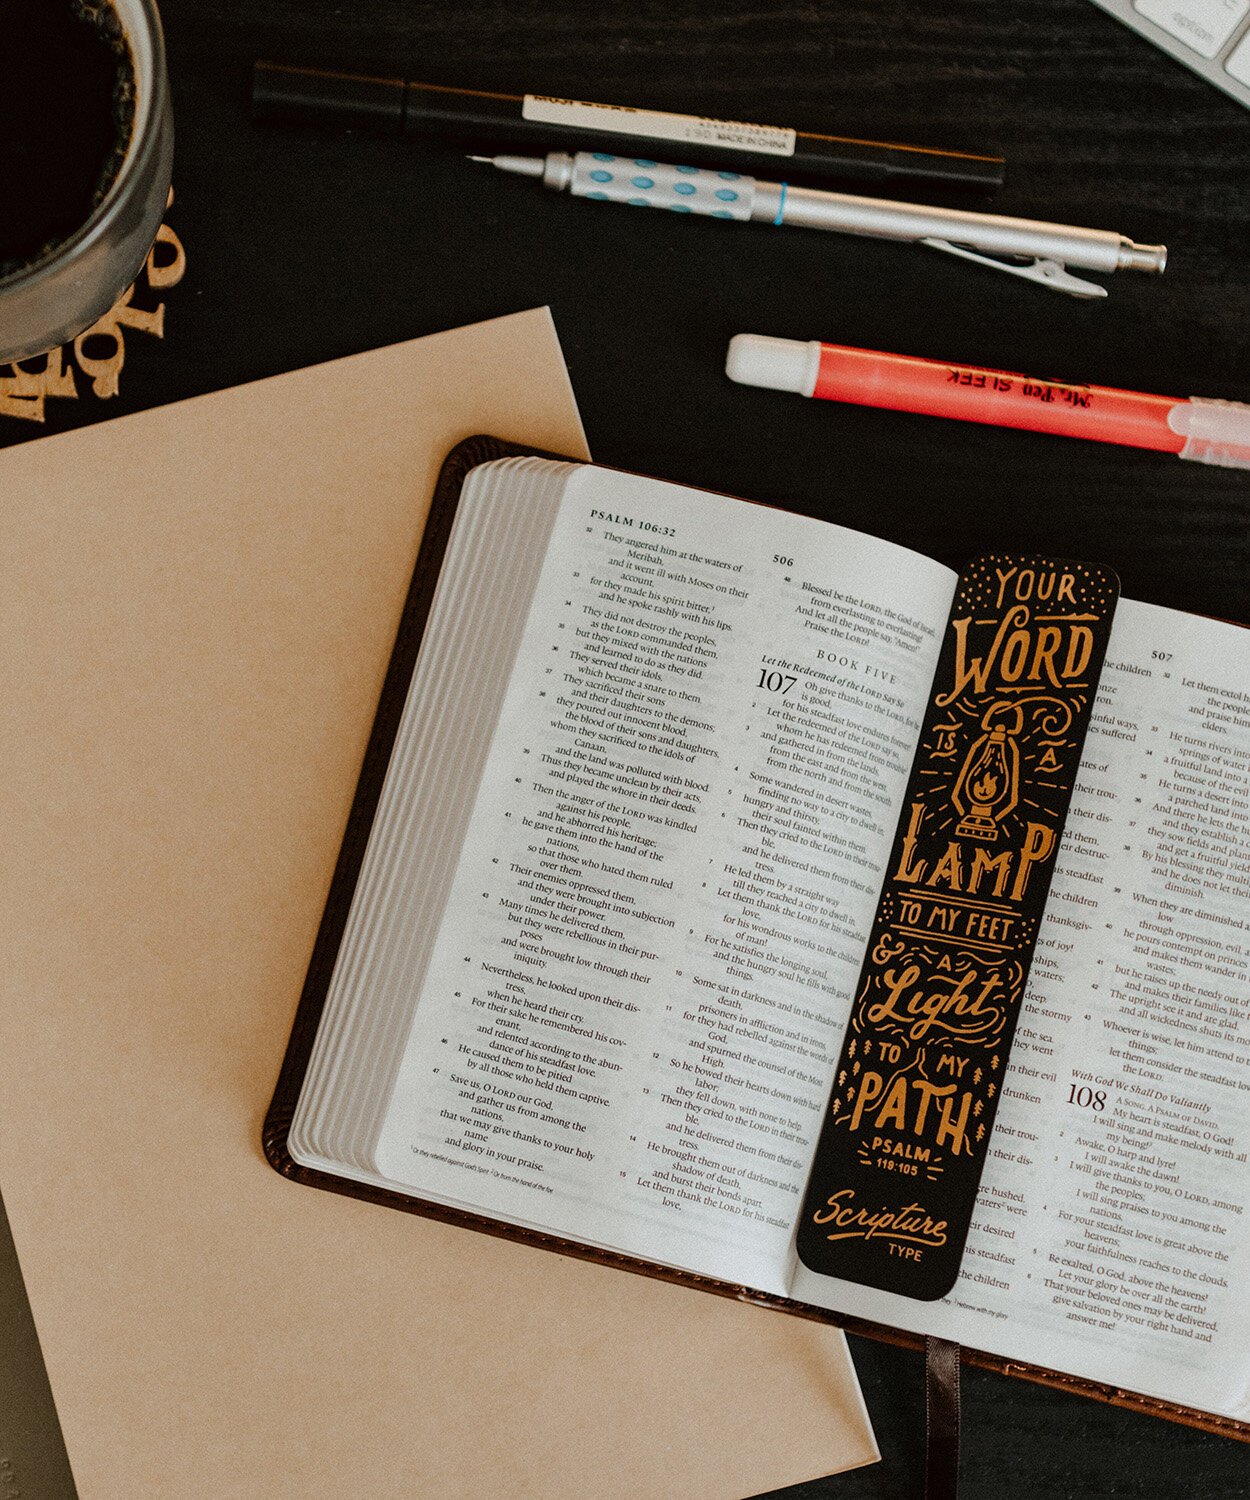 option
MADE IN CHINA
Mr. Pen SLEEK
PSALM 106:32
506
32 They angered him at the waters of
Meribah,
and it went ill with Moses on their
account,
33 for they made his spirit bitter,
and he spoke rashly with his lips.
34 They did not destroy the peoples,
as the LORD commanded them,
35 but they mixed with the nations
and learned to do as they did.
36 They served their idols,
which became a snare to them.
37 They sacrificed their sons
and their daughters to the demons;
38 they poured out innocent blood,
the blood of their sons and daughters,
whom they sacrificed to the idols of
Canaan,
and the land was polluted with blood.
39 Thus they became unclean by their acts,
and played the whore in their deeds.
40 Then the anger of the LORD was kindled
against his people,
and he abhorred his heritage;
41 he gave them into the hand of the
nations,
so that those who hated them ruled
over them.
42 Their enemies oppressed them,
and they were brought into subjection
under their power.
43 Many times he delivered them,
but they were rebellious in their pur-
poses
and were brought low through their
iniquity.
44 Nevertheless, he looked upon their dis-
tress,
when he heard their cry.
45 For their sake he remembered his cov-
enant,
and relented according to the abun-
dance of his steadfast love.
46 He caused them to be pitied
by all those who held them captive.
47 Save us, O LORD our God,
and gather us from among the
nations,
that we may give thanks to your holy
name
and glory in your praise.
48 Blessed be the LORD, the God of Israel,
from everlasting to everlasting!
And let all the people say, "Amen!"
Praise the LORD!
BOOK FIVE
Let the Redeemed of the LORD Say So
107 Oh give thanks to the LORD, for he
is good,
for his steadfast love endures forever!
2 Let the redeemed of the LORD say so,
whom he has redeemed from trouble
3 and gathered in from the lands,
from the east and from the west,
from the north and from the south.
4 Some wandered in desert wastes,
finding no way to a city to dwell in;
5 hungry and thirsty,
their soul fainted within them.
6 Then they cried to the LORD in their trou-
ble,
and he delivered them from their dis-
tress.
7 He led them by a straight way
till they reached a city to dwell in.
8 Let them thank the LORD for his steadfast
love,
for his wondrous works to the children
of man!
9 For he satisfies the longing soul,
and the hungry soul he fills with good
things.
10 Some sat in darkness and in the shadow of
death,
prisoners in affliction and in irons,
11 for they had rebelled against the words of
God,
and spurned the counsel of the Most
High.
12 So he bowed their hearts down with hard
labor;
they fell down, with none to help.
13 Then they cried to the LORD in their trou-
ble,
and he delivered them from their dis-
tress.
14 He brought them out of darkness and the
shadow of death,
and burst their bonds apart.
15 Let them thank the LORD for his steadfast
love,
YOUR
WORD
IS A
LAMP
TO MY FEET
& A
Light
TO MY
PATH
PSALM
119:105
Scripture
TYPE
507
he children
sinful ways,
s suffered
ates of
their trou-
their dis-
d them,
r destruc-
s steadfast
he children
thanksgiv-
s of joy!
ships,
waters;
deep
the stormy
f the sea
hey went
n their evil
drunken
their trou-
their dis-
re hushed,
vaters were
ir desired
his steadfast
he children
32 Let them extol h
the people
and praise him
elders.
33 He turns rivers int
springs of water i
34 a fruitful land into a
because of the evil
35 He turns a desert into
a parched land into
36 And there he lets the h
and they establish a c
37 they sow fields and plant
and get a fruitful yield
38 By his blessing they multi
and he does not let thei
diminish.
39 When they are diminished a
low
through oppression, evil, a
40 he pours contempt on princes
and makes them wander in
wastes;
41 but he raises up the needy out of
and makes their families like f
42 The upright see it and are glad,
and all wickedness shuts its mo
43 Whoever is wise, let him attend to t
things;
let them consider the steadfast lo
the LORD.
With God We Shall Do Valiantly
108 A SONG. A PSALM OF DAVID.
My heart is steadfast, O God!
I will sing and make melody with all
my being!
2 Awake, O harp and lyre!
I will awake the dawn!
3 I will give thanks to you, O LORD, among
the peoples;
I will sing praises to you among the
nations.
4 For your steadfast love is great above the
heavens;
your faithfulness reaches to the clouds.
5 Be exalted, O God, above the heavens!
Let your glory be over all the earth!
6 That your beloved ones may be delivered,
give salvation by your right hand and
answer me!